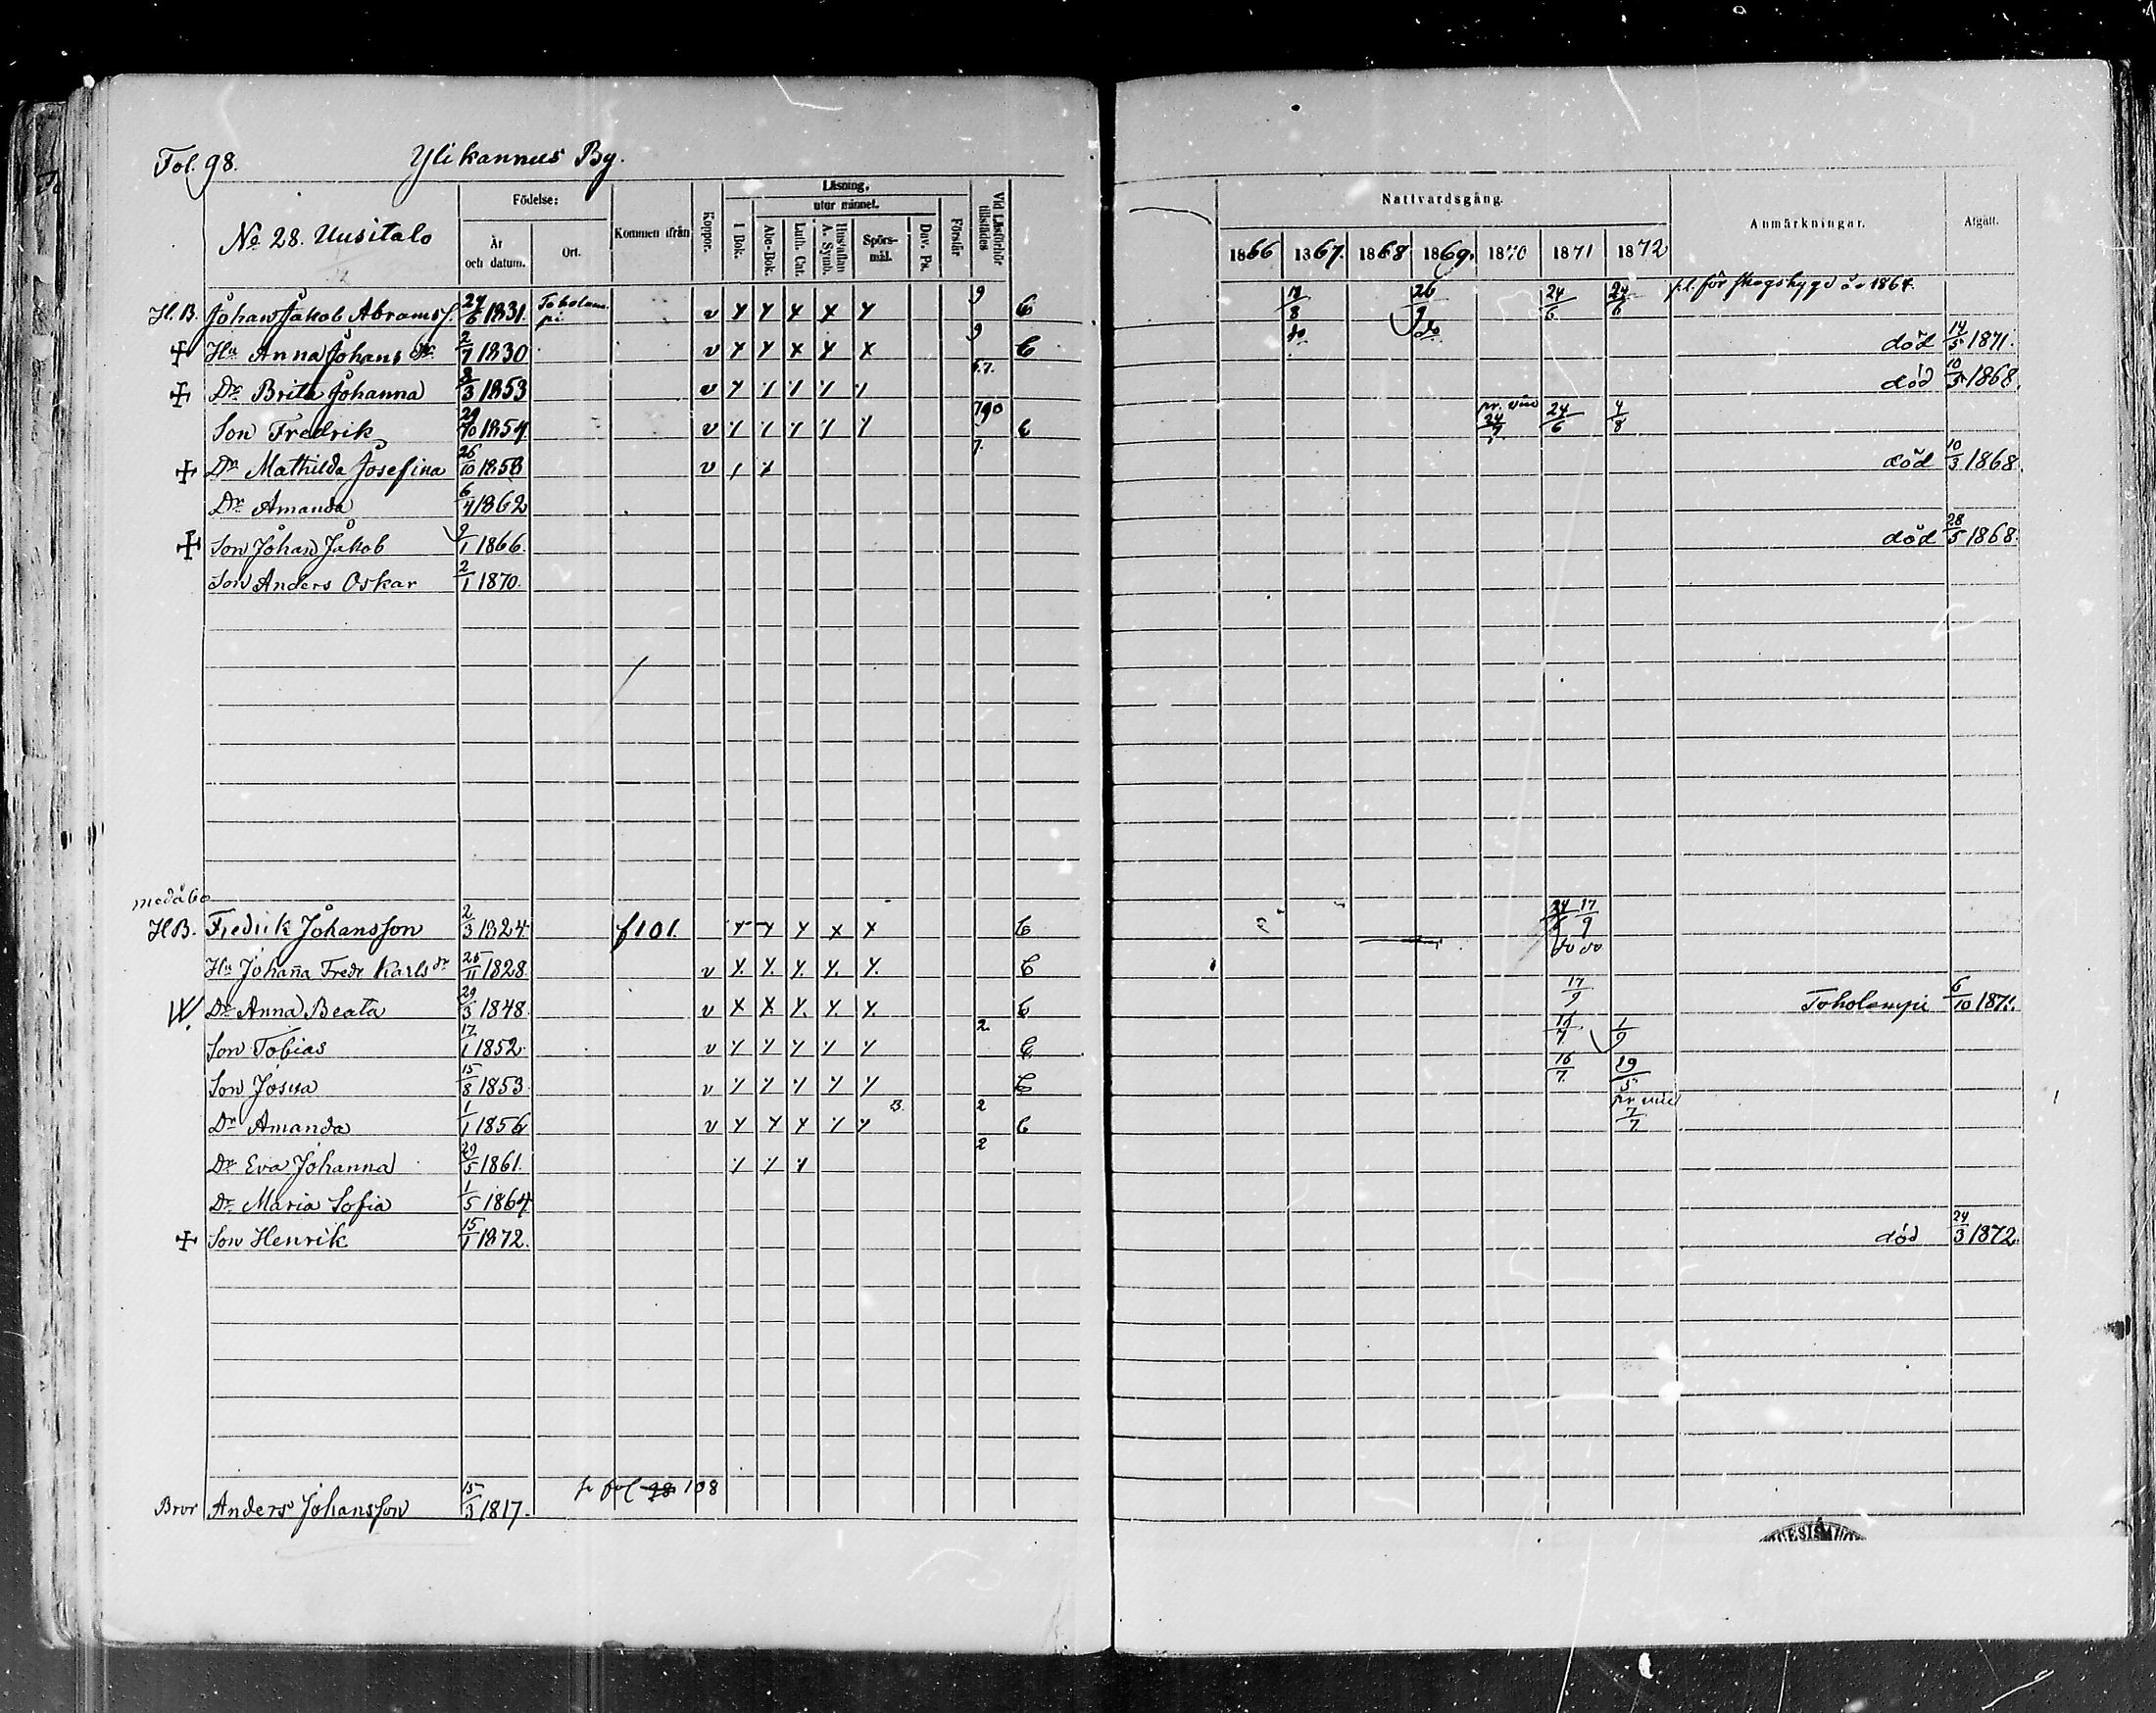 Fol. 98. Ylikannus By.
No 28. Uusitalo
Födelse:
År och datum.
Ort.
Kommen ifrån
Koppor.
Läsning,
utur minnet.
I Bok.
Abc-Bok.
Luth. Cat.
Hustaflan A. Symb.
Spörs-mål.
Dav. Ps.
Förstår
Vid Läsförhör tillstädes
Nattvardsgång.
1866 1867. 1868 1869. 1870 1871 1872
Anmärkningar.
Afgått.
H.B. Johan Jakob Abramss. 24/6 1831. Toholampi v 9 C 18/8 26/9 24/6 24/6 pl. för skogshygd år 1864.
Hu Anna Johans dr 2/7 1830 v 9 C do do död 14/5 1871.
Dr Brita Johanna 8/3 1853 v 6.7. död 10/5 1868.
Son Fredrik 29/10 1854 v 790 C pr. vin 24/7 24/6 4/8
Dr Mathilda Josefina 26/10 1858 v 7. död 10/3 1868.
Dr Amanda 6/4 1862
Son Johan Jakob 9/1 1866. död 28/5 1868.
Son Anders Oskar 2/1 1870.
medåbo
H.B. Fredrik Johansson 2/3 1824 f 101. C 24/6 17/9
Hu Johanna Fredr Karls dr 25/11 1828. v C do do
Dr Anna Beata 29/3 1848. v C 17/9 Toholampi 6/10 1871.
Son Tobias 17/1 1852. v 2 C 16/7 1/9
Son Josua 15/8 1853. v C 16/7 29/5
Dr Amanda 1/1 1856 v B. 2 C pr vin 7/7
Dr Eva Johanna 29/5 1861. 2
Dr Maria Sofia 1/5 1864
Son Henrik 15/1 1872. död 24/3 1872.
Bror Anders Johansson 15/3 1817. fol 98 108